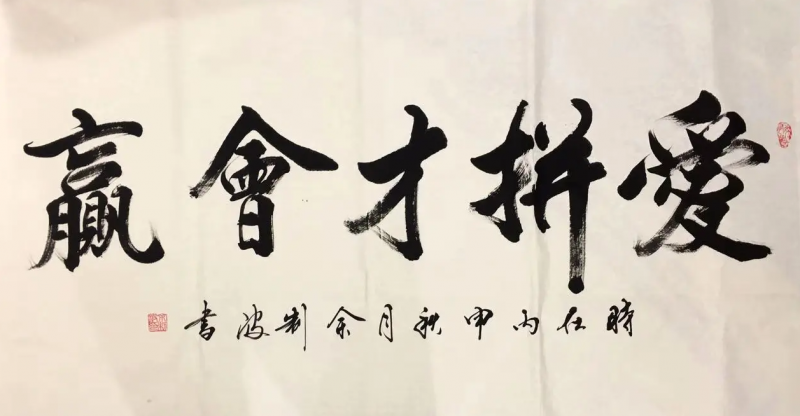 愛拼才會贏
時在丙申秋月余制波書